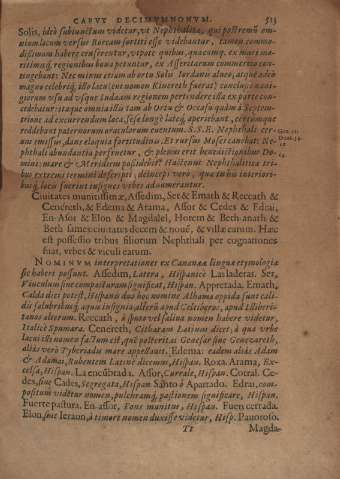 CAPVT DECIMVMNONVM. 513
Solis, ideò subiunctum videtur, vt Nephthalitæ, qui postremũ om-
nium locum versus Boream sortiti esse videbantur, tamen commo-
dissimum habere censerentur, vtpote quibus, quacumq; ex mare ma-
ritimâq; regionibus bona petuntur, ex Asseritarum commercio con-
tingebant: Nec minus etiam ab ortu Solis Iordanis alueo, atque adeò
magno celebriq; illo lacu (cui nomen Cinereth fuerat) coniuncti
giorum vsu ad vsque Iudæam regionem pertendere illa ex parte con-
cedebatur: itaque omnia illa tam ab Ortu & Occasu quàm à Septen-
trione id excurrendum loca, sese longè latéq; aperibant, cæterùmque
reddebant paternorum oraculorum euentum. S.S.E. Nephthali cer-
uus emissus, dans eloquia pulchritudinis. Et rursus Moses canebat: Ne-
phthali abundantia perfruetur, & plenus erit benedictionibus Do-
mini: mare & Meridiem possidebit. Hactenus Nephthaliticæ tri-
bus extremi termini descripti; deinceps vero, quæ in iis interiori-
busq; locis fuerint insignes vrbes adnumerantur.
Ciuitates munitissimæ, Assedim, Ser & Emath & Reccath &
Cenereth, & Edema & Arama, Assor & Cedes & Edrai,
En-Asor & Elon & Magdalel, Horem & Beth-anath &
Beth sames: ciuitates decem & nouẽ, & villæ earum. Hæc
est possessio tribus filiorum Nephthali per cognationes
suas, vrbes & viculi earum.
NOMINVM interpretationes ex Cananæa linguæ etymologia
sic haberi possunt. Assedim, Latera, Hispanicè Lasladeras. Ser,
Vinculum siue compositurã significat, Hispan. Appretada. Emath,
Calda dici potest, Hispanis duo hoc nomine Alhama oppida sunt cali-
dis salubribusq; aquis insignia, alterũ apud Celtiberos, apud Illiberi-
tanos alterum. Reccath, à sputo vel salina nomen habere videtur,
Italicè Spumara. Cenereth, Citharam Latinus dicet; à qua vrbe
lacui illi nomen factum est, quẽ posteritas Genesar siue Genezareth,
aliàs verò Tyberiadis mare appellauit. Edema: eadem aliàs Adam
& Adama, Rubentem Latinè dicerem, Hispan. Roxa. Arama, Ex-
celsa, Hispan. La encũbrada. Assor, Curiale, Hispan. Corral. Ce-
des, siue Cades, Segregata, Hispan. Santo ó Apartado. Edrai, com-
positum videtur nomen, pulchramq; pastionem significare, Hispan.
Fuerte pastura. En-assor, Fons munitus, Hispan. Fuen cerrada.
Elon, siue Ieraun, à timore nomen duxisse videtur, Hisp. Pauoroso.
Tt Magda-